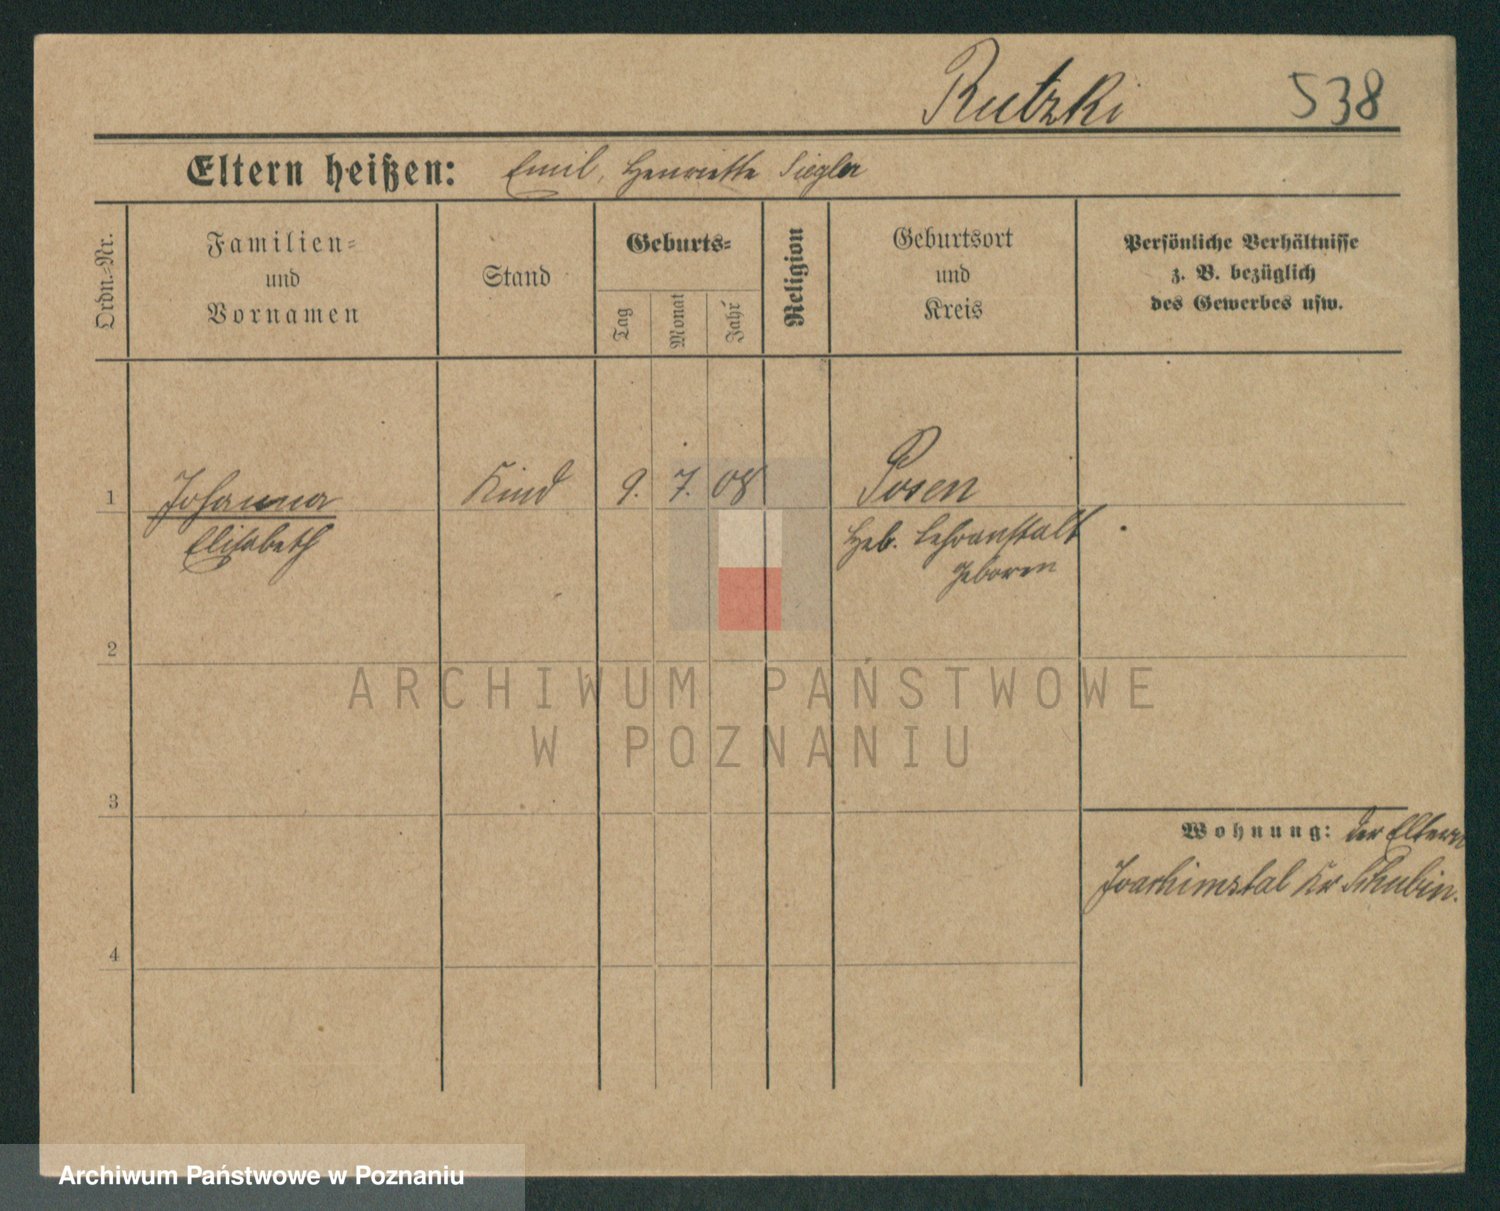 Rutzki 538
Eltern heißen: Emil, Henriette Siegler
Ordn.-Nr.
Familien-
und
Vornamen
Stand
Geburts-
Tag
Monat
Jahr
Religion
Geburtsort
und
Kreis
Persönliche Verhältnisse
z. B. bezüglich
des Gewerbes usw.
1 Johanna Kind 9. 7. 08 Posen
Elisabeth
Heb. Lehranstalt
geboren
2
ARCHIWUM PAŃSTWOWE
W POZNANIU
3
Wohnung: der Eltern
Joachimstal Kr Schubin.
4
Archiwum Państwowe w Poznaniu